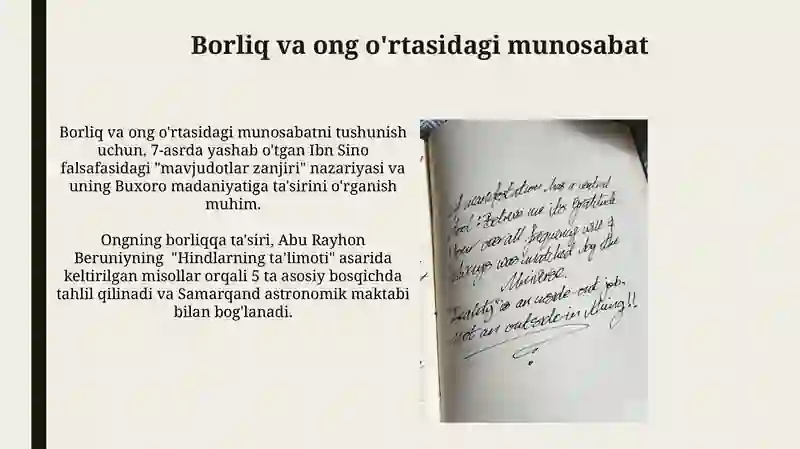 Borliq va ong o'rtasidagi munosabat
Borliq va ong o'rtasidagi munosabatni tushunish
uchun, 7-asrda yashab o'tgan Ibn Sino
falsafasidagi "mavjudotlar zanjiri" nazariyasi va
uning Buxoro madaniyatiga ta'sirini o'rganish
muhim.
Ongning borliqqa ta'siri, Abu Rayhon
Beruniyning "Hindlarning ta'limoti" asarida
keltirilgan misollar orqali 5 ta asosiy bosqichda
tahlil qilinadi va Samarqand astronomik maktabi
bilan bog'lanadi.
manifestation has a
me its gratitude
Your overall frequency will
always matched by the
Universe.
"Reality" is an inside-out job,
not an outside-in thing!!